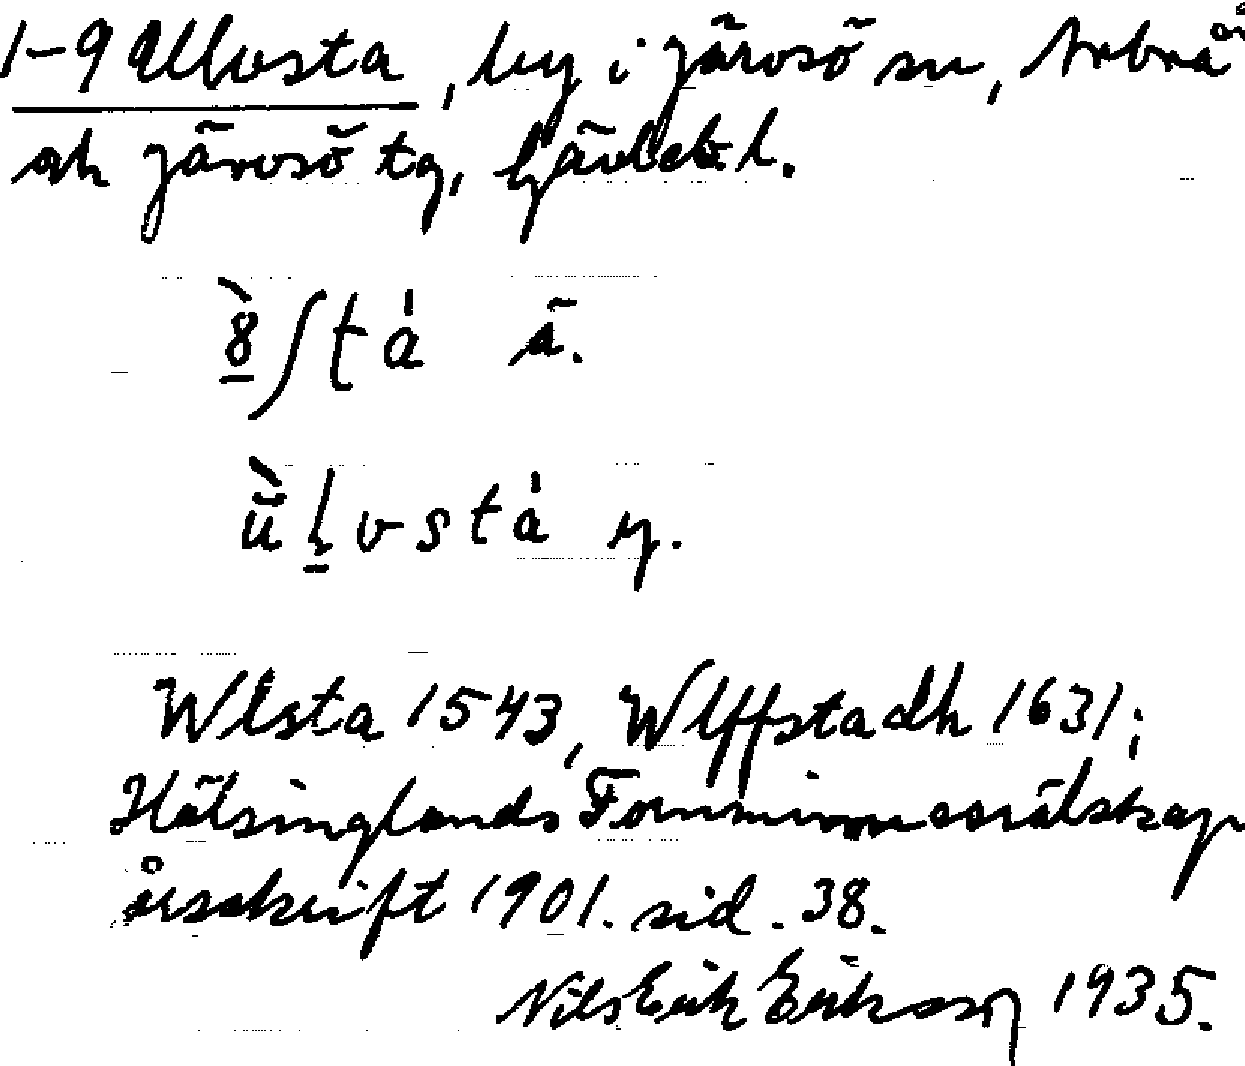 1-9 Ullvsta, by i järvsö sn, Arbrå
ok järvsö tg, Gävleb. l.
ä.
ŭlvstá y.
Wlsta 1543, Wlffstadh 1631;
Hälsinglands Fornminnessälskap
årsskrift 1901. sid. 38.
Nils Erik Eriksson 1935.